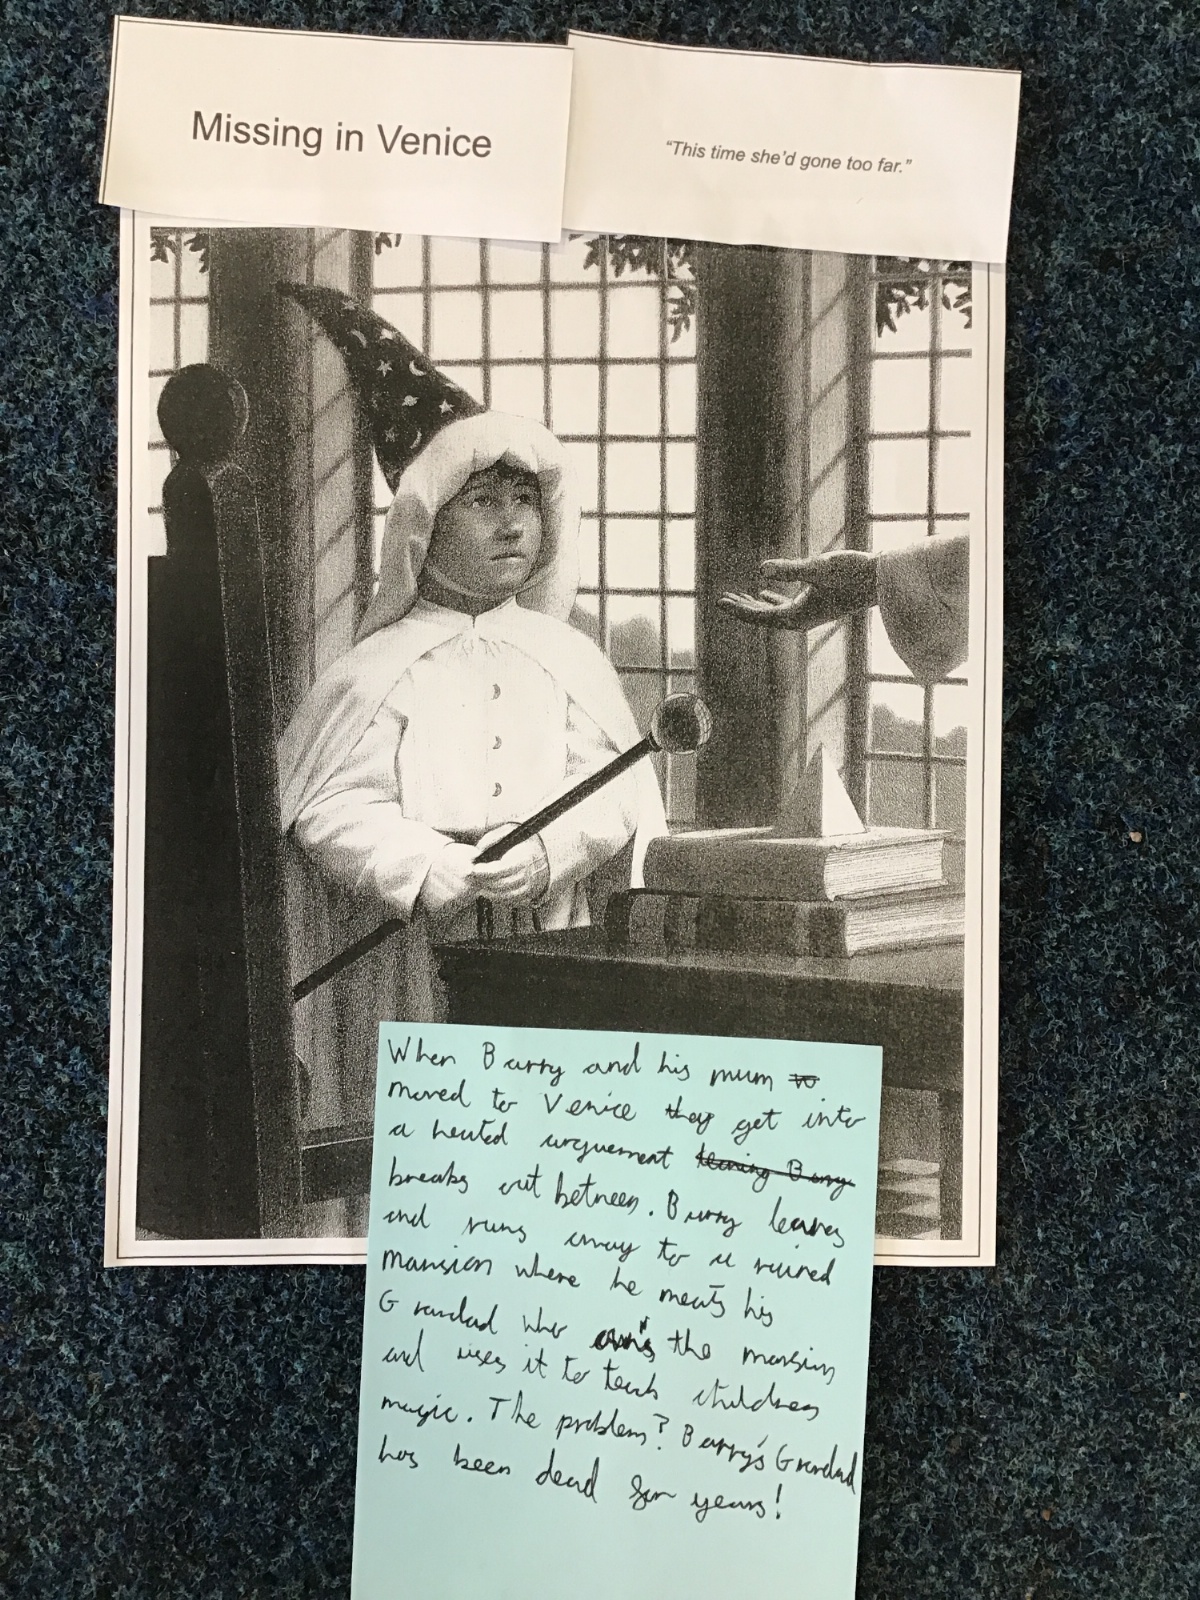 Missing in Venice
“This time she’d gone too far.”
When Barry and his mum to
moved to Venice they get into
a heated arguement leaving Barry
breaks out between. Barry leaves
and runs away to a ruined
mansion where he meats his
Grandad who own's the mansion
and uses it to teach children
magic. The problem? Barry's Grandad
has been dead for years!